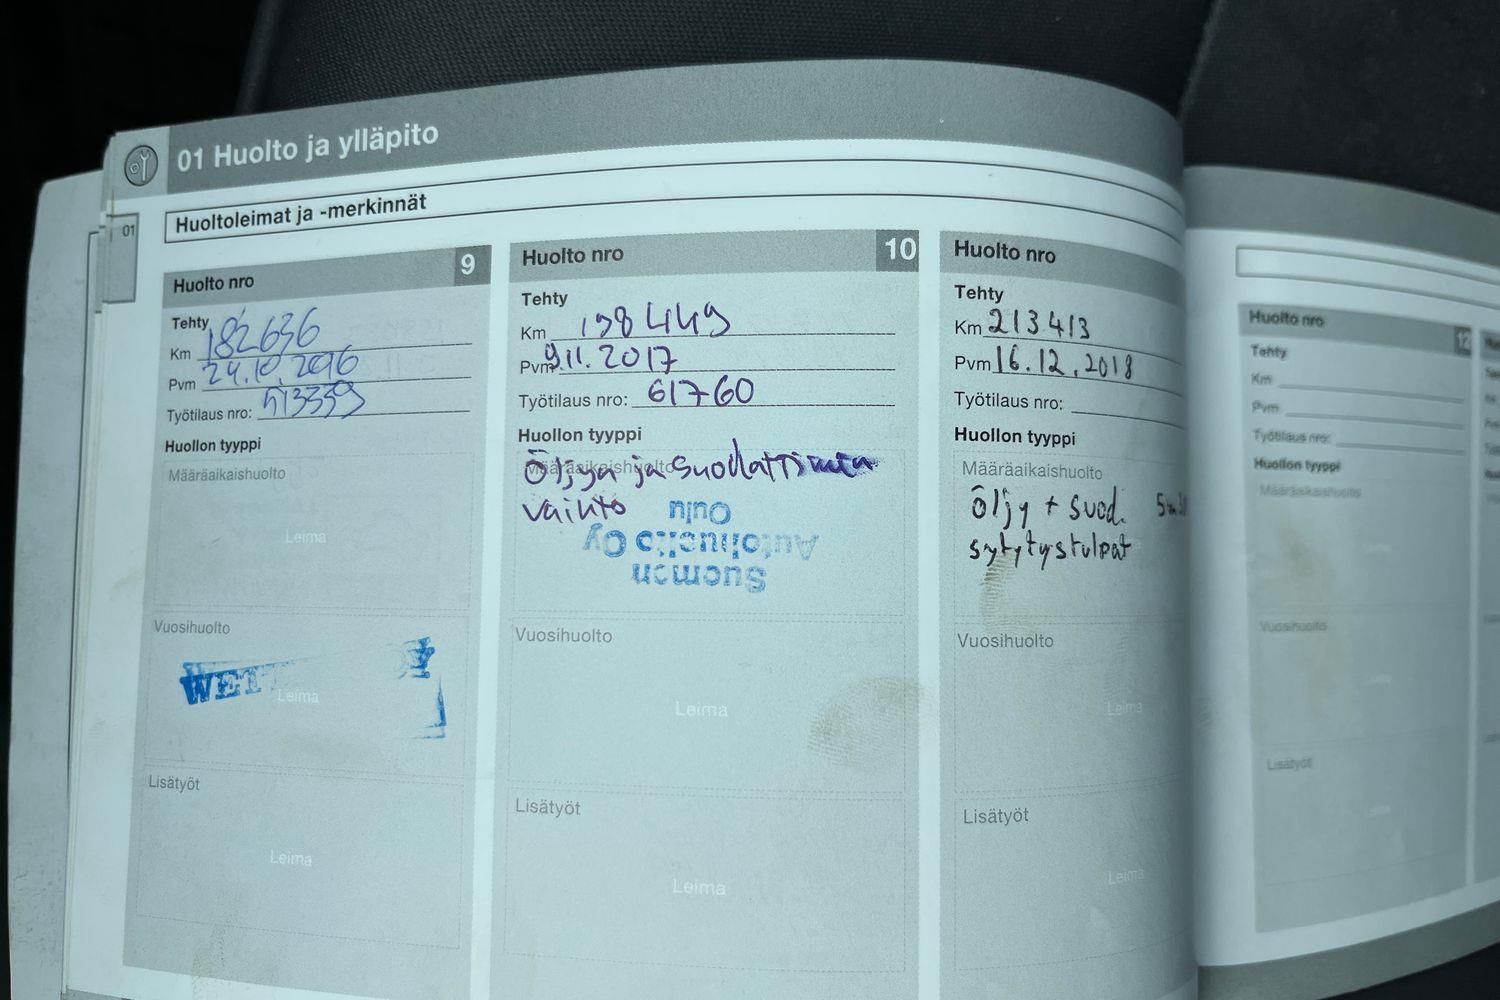 01 Huolto ja ylläpito
01
Huoltoleimat ja -merkinnät
Huolto nro 9
Tehty
Km 182636
Pvm 24.10.2016
Työtilaus nro: 513339
Huollon tyyppi
Määräaikaishuolto
Leima
Vuosihuolto
Leima
Lisätyöt
Leima
Huolto nro 10
Tehty
Km 198449
Pvm 9.11.2017
Työtilaus nro: 61760
Huollon tyyppi
Määräaikaishuolto
Öljyn ja suodattimen
vaihto
Suomen
Autohuolto Oy
Oulu
Vuosihuolto
Leima
Lisätyöt
Leima
Huolto nro
Tehty
Km 213413
Pvm 16.12.2018
Työtilaus nro:
Huollon tyyppi
Määräaikaishuolto
öljy + suod.
sytytystulpat
Vuosihuolto
Leima
Lisätyöt
Leima
Huolto nro 12
Tehty
Km
Pvm
Työtilaus nro:
Huollon tyyppi
Määräaikaishuolto
Vuosihuolto
Lisätyöt